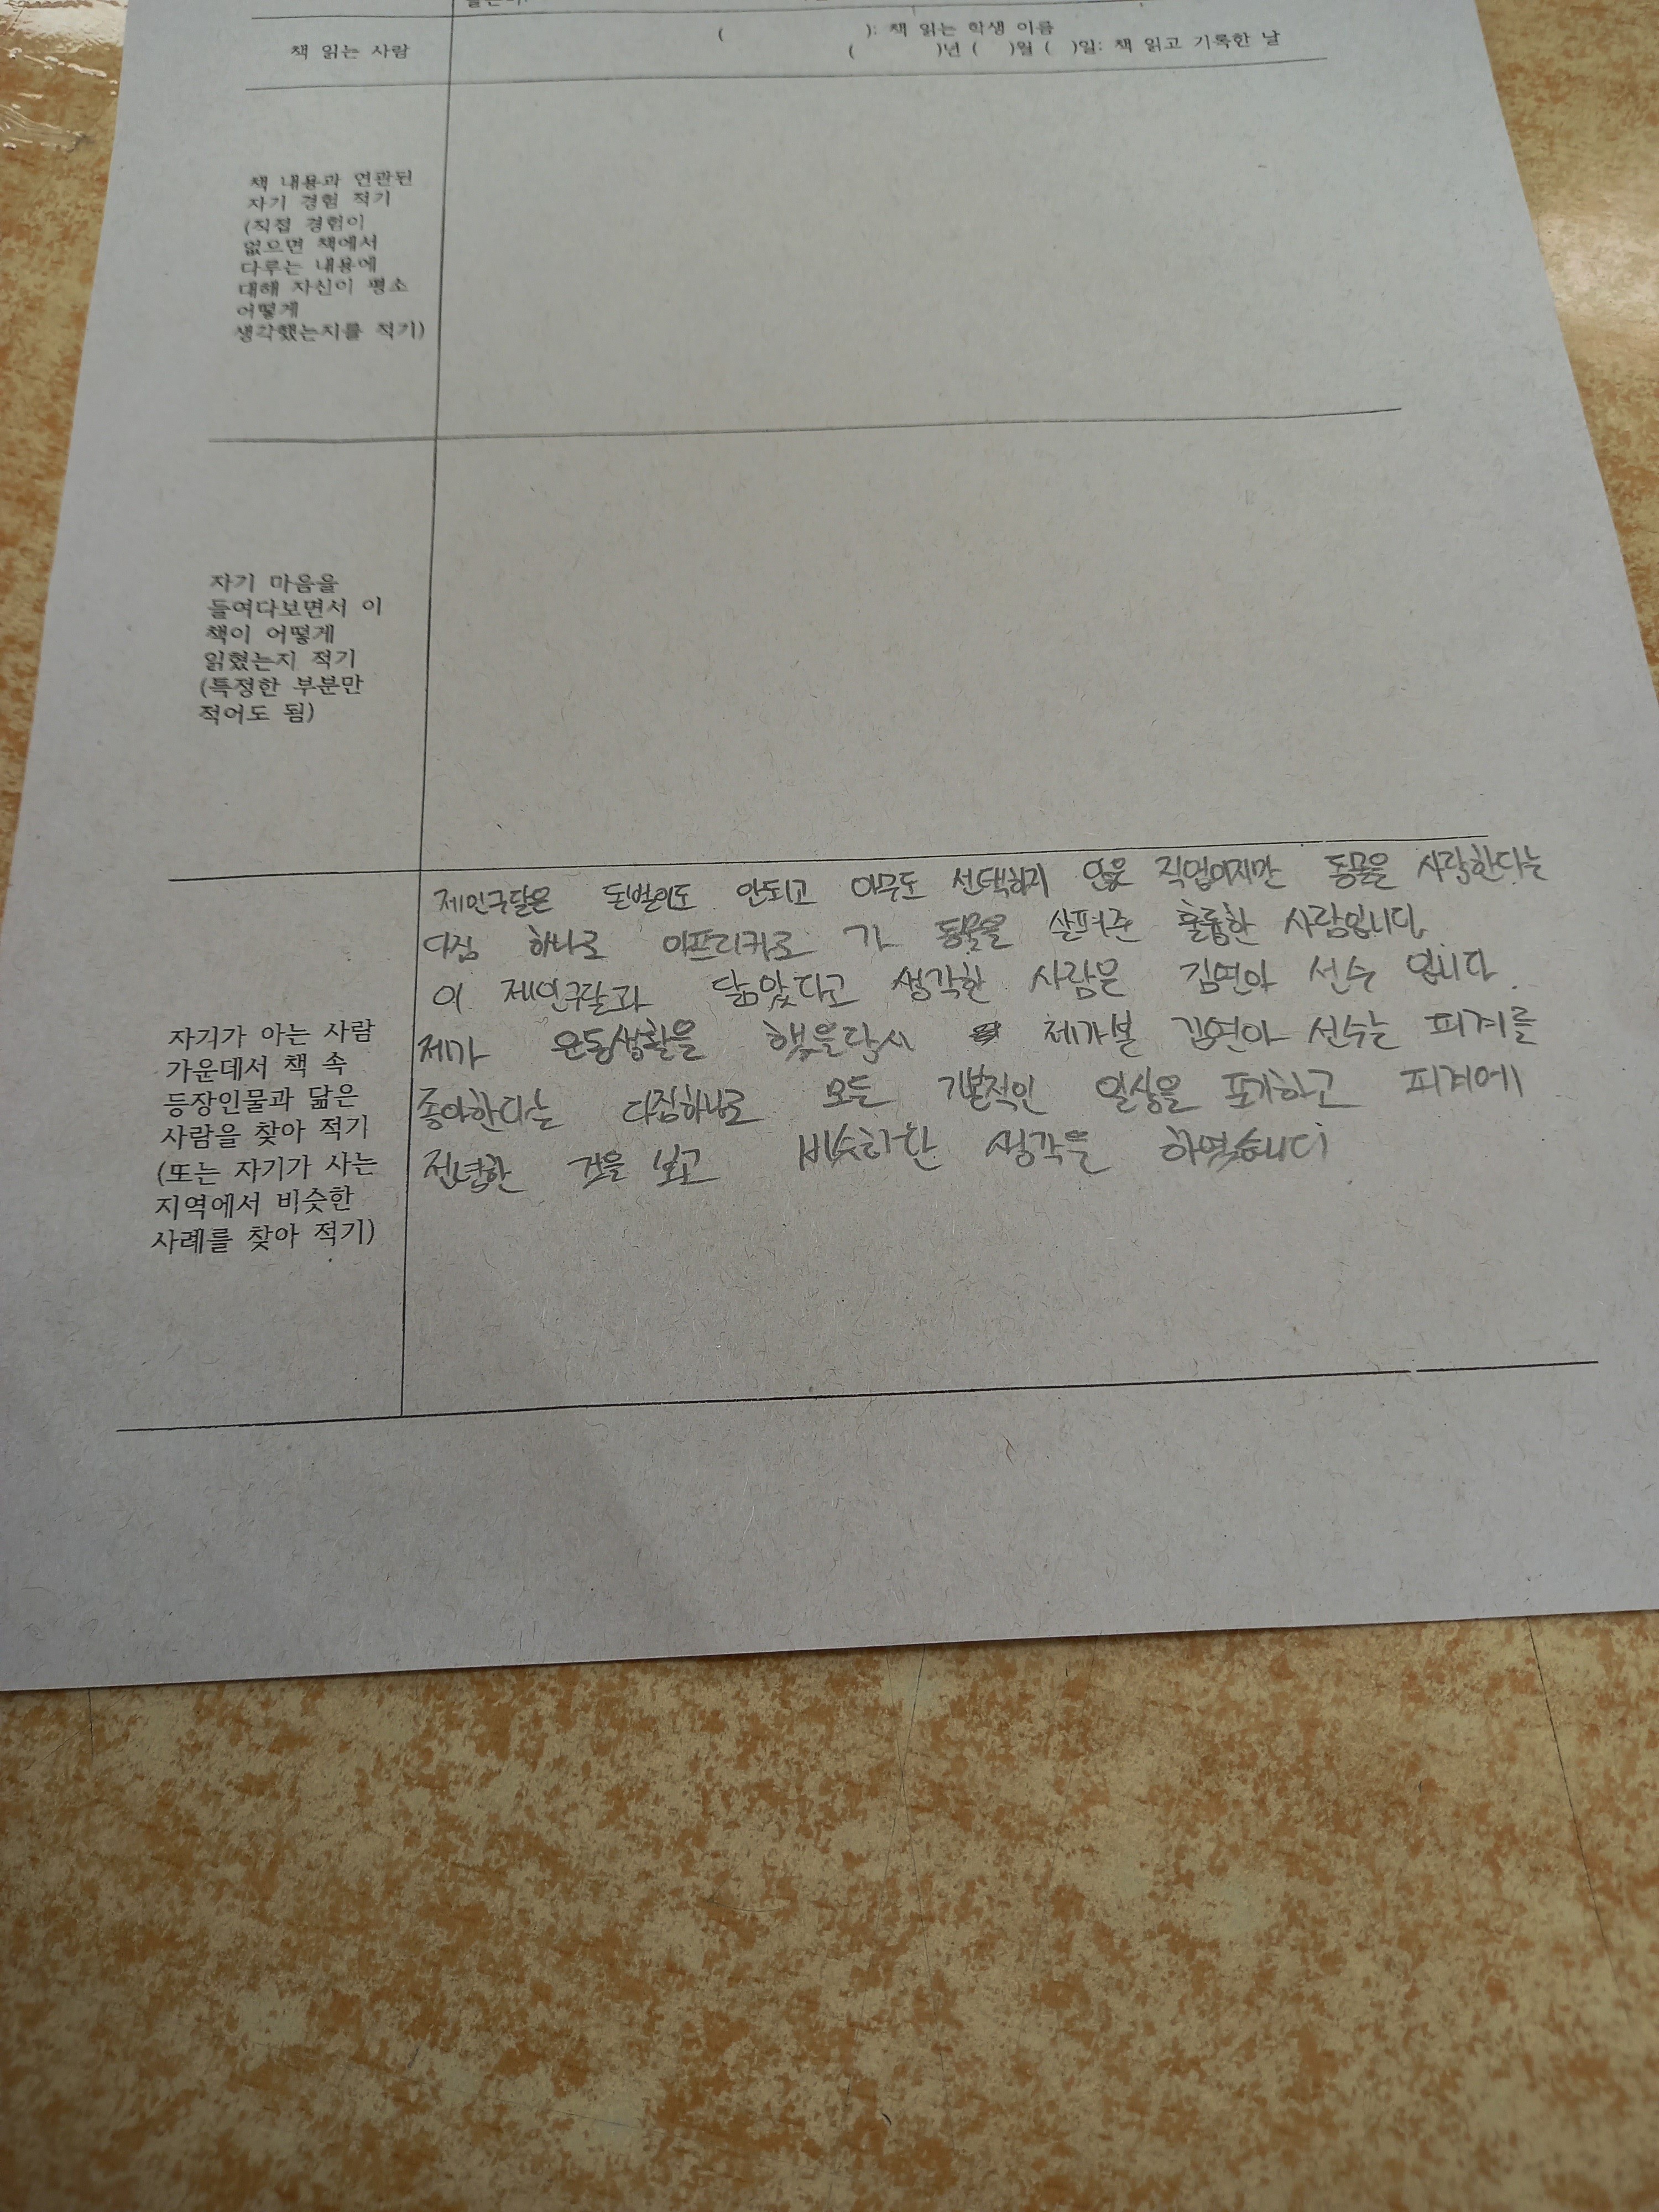 ( ): 책 읽는 학생 이름
책 읽는 사람
( )년 ( )월 ( )일: 책 읽고 기록한 날
책 내용과 연관된
자기 경험 적기
(직접 경험이
없으면 책에서
다루는 내용에
대해 자신이 평소
어떻게
생각했는지를 적기)
자기 마음을
들여다보면서 이
책이 어떻게
읽혔는지 적기
(특정한 부분만
적어도 됨)
자기가 아는 사람
가운데서 책 속
등장인물과 닮은
사람을 찾아 적기
(또는 자기가 사는
지역에서 비슷한
사례를 찾아 적기)
제인구달은 돈벌이도 안되고 아무도 선택하지 않을 직업이지만 동물을 사랑한다는
다짐 하나로 아프리카로 가 동물을 살펴준 훌륭한 사람입니다
이 제인구달과 닮았다고 생각한 사람은 김연아 선수 입니다.
제가 운동생활을 했을당시 제가본 김연아 선수는 피겨를
좋아한다는 다짐하나로 모든 기본적인 일상을 포기하고 피겨에
전념한 것을 보고 비슷하한 생각을 하였습니다